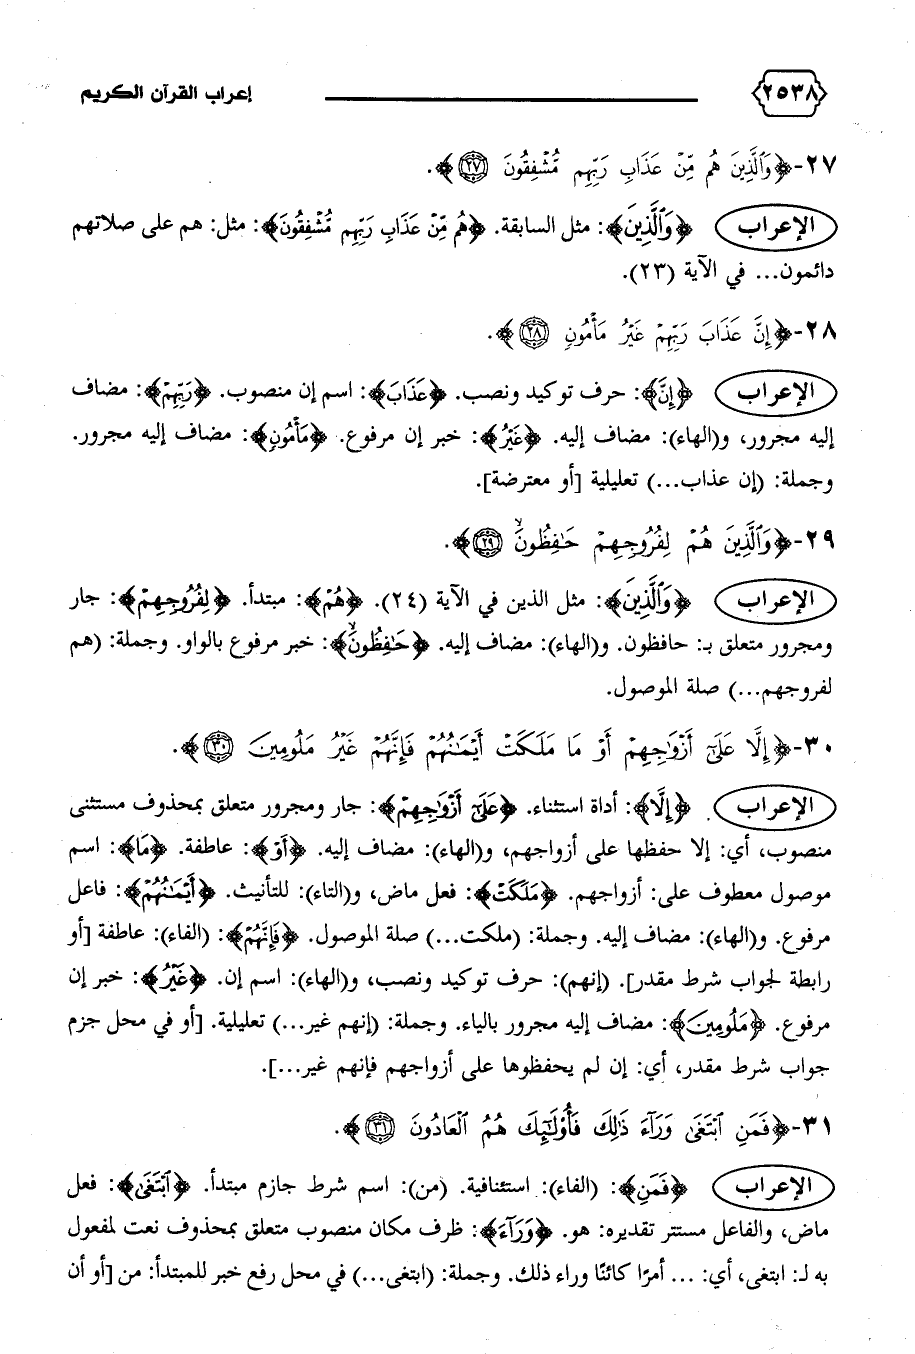 ٢٥٣٨ إعراب القرآن الكريم
٢٧-﴿وَالَّذِينَ هُم مِّنْ عَذَابِ رَبِّهِم مُّشْفِقُونَ ٢٧﴾.
الإعراب ﴿وَالَّذِينَ﴾: مثل السابقة. ﴿هُم مِّنْ عَذَابِ رَبِّهِم مُّشْفِقُونَ﴾: مثل: هم على صلاتهم
دائمون... في الآية (٢٣).
٢٨-﴿إِنَّ عَذَابَ رَبِّهِمْ غَيْرُ مَأْمُونٍ ٢٨﴾.
الإعراب ﴿إِنَّ﴾: حرف توكيد ونصب. ﴿عَذَابَ﴾: اسم إن منصوب. ﴿رَبِّهِمْ﴾: مضاف
إليه مجرور، و(الهاء): مضاف إليه. ﴿غَيْرُ﴾: خبر إن مرفوع. ﴿مَأْمُونٍ﴾: مضاف إليه مجرور.
وجملة: (إن عذاب...) تعليلية [أو معترضة].
٢٩-﴿وَالَّذِينَ هُمْ لِفُرُوجِهِمْ حَٰفِظُونَ ٢٩﴾.
الإعراب ﴿وَالَّذِينَ﴾: مثل الذين في الآية (٢٤). ﴿هُمْ﴾: مبتدأ. ﴿لِفُرُوجِهِمْ﴾: جار
ومجرور متعلق بـ: حافظون. و(الهاء): مضاف إليه. ﴿حَٰفِظُونَ﴾: خبر مرفوع بالواو. وجملة: (هم
لفروجهم...) صلة الموصول.
٣٠-﴿إِلَّا عَلَىٰٓ أَزْوَٰجِهِمْ أَوْ مَا مَلَكَتْ أَيْمَٰنُهُمْ فَإِنَّهُمْ غَيْرُ مَلُومِينَ ٣٠﴾.
الإعراب ﴿إِلَّا﴾: أداة استثناء. ﴿عَلَىٰٓ أَزْوَٰجِهِمْ﴾: جار ومجرور متعلق بمحذوف مستثنى
منصوب، أي: إلا حفظها على أزواجهم، و(الهاء): مضاف إليه. ﴿أَوْ﴾: عاطفة. ﴿مَا﴾: اسم
موصول معطوف على: أزواجهم. ﴿مَلَكَتْ﴾: فعل ماض، و(التاء): للتأنيث. ﴿أَيْمَٰنُهُمْ﴾: فاعل
مرفوع. و(الهاء): مضاف إليه. وجملة: (ملكت...) صلة الموصول. ﴿فَإِنَّهُمْ﴾: (الفاء): عاطفة [أو
رابطة لجواب شرط مقدر]. (إنهم): حرف توكيد ونصب، و(الهاء): اسم إن. ﴿غَيْرُ﴾: خبر إن
مرفوع. ﴿مَلُومِينَ﴾: مضاف إليه مجرور بالياء. وجملة: (إنهم غير...) تعليلية. [أو في محل جزم
جواب شرط مقدر، أي: إن لم يحفظوها على أزواجهم فإنهم غير...].
٣١-﴿فَمَنِ ابْتَغَىٰ وَرَآءَ ذَٰلِكَ فَأُو۟لَٰٓئِكَ هُمُ الْعَادُونَ ٣١﴾.
الإعراب ﴿فَمَنِ﴾: (الفاء): استئنافية. (من): اسم شرط جازم مبتدأ. ﴿ابْتَغَىٰ﴾: فعل
ماض، والفاعل مستتر تقديره: هو. ﴿وَرَآءَ﴾: ظرف مكان منصوب متعلق بمحذوف نعت لمفعول
به لـ: ابتغى، أي: ... أمرًا كائنًا وراء ذلك. وجملة: (ابتغى...) في محل رفع خبر للمبتدأ: من [أو أن